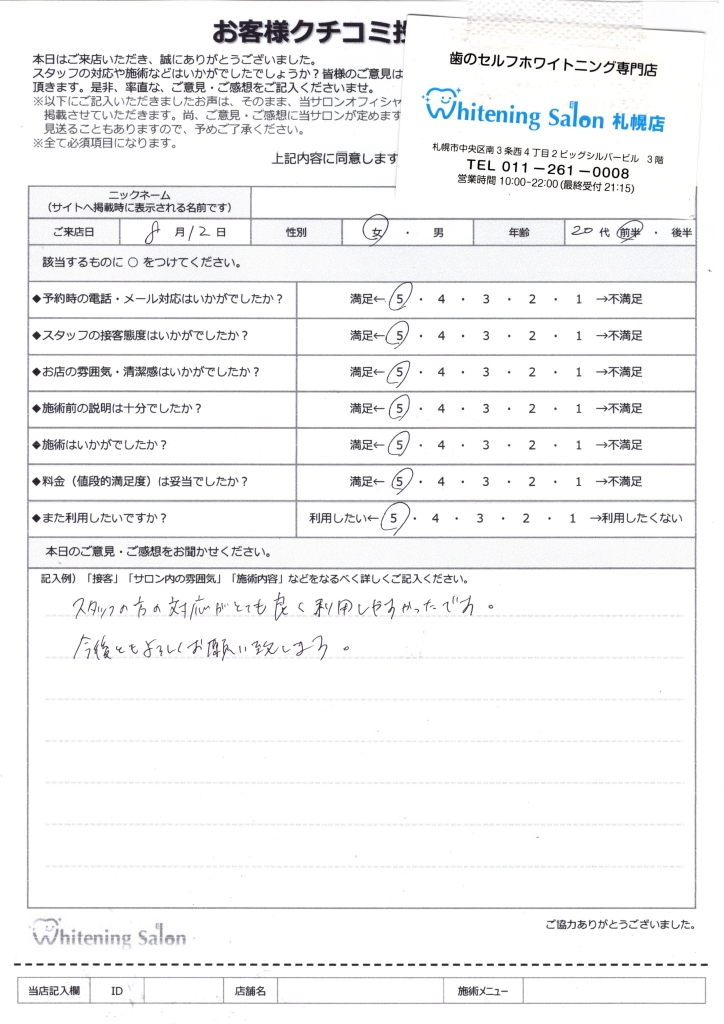 お客様クチコミ
本日はご来店いただき、誠にありがとうございました。
スタッフの対応や施術などはいかがでしたでしょうか？皆様のご意見は
頂きます。是非、率直な、ご意見・ご感想をご記入くださいませ。
※以下にご記入いただきましたお声は、そのまま、当サロンオフィシャ
掲載させていただきます。尚、ご意見・ご感想に当サロンが定めます
見送ることもありますので、予めご了承ください。
※全て必須項目になります。
上記内容に同意します
歯のセルフホワイトニング専門店
Whitening Salon 札幌店
札幌市中央区南3条西4丁目2ビッグシルバービル 3階
TEL 011－261－0008
営業時間 10:00~22:00(最終受付 21:15)
ニックネーム
（サイトへ掲載時に表示される名前です）
ご来店日 8 月 12 日 性別 女 ・ 男 年齢 20 代 前半 ・ 後半
該当するものに ○ をつけてください。
◆予約時の電話・メール対応はいかがでしたか？ 満足← 5 ・ 4 ・ 3 ・ 2 ・ 1 →不満足
◆スタッフの接客態度はいかがでしたか？ 満足← 5 ・ 4 ・ 3 ・ 2 ・ 1 →不満足
◆お店の雰囲気・清潔感はいかがでしたか？ 満足← 5 ・ 4 ・ 3 ・ 2 ・ 1 →不満足
◆施術前の説明は十分でしたか？ 満足← 5 ・ 4 ・ 3 ・ 2 ・ 1 →不満足
◆施術はいかがでしたか？ 満足← 5 ・ 4 ・ 3 ・ 2 ・ 1 →不満足
◆料金（値段的満足度）は妥当でしたか？ 満足← 5 ・ 4 ・ 3 ・ 2 ・ 1 →不満足
◆また利用したいですか？ 利用したい← 5 ・ 4 ・ 3 ・ 2 ・ 1 →利用したくない
本日のご意見・ご感想をお聞かせください。
記入例）「接客」「サロン内の雰囲気」「施術内容」などをなるべく詳しくご記入ください。
スタッフの方の対応がとても良く利用しやすかったです。
今後ともよろしくお願い致します。
ご協力ありがとうございました。
Whitening Salon
当店記入欄 ID 店舗名 施術メニュー